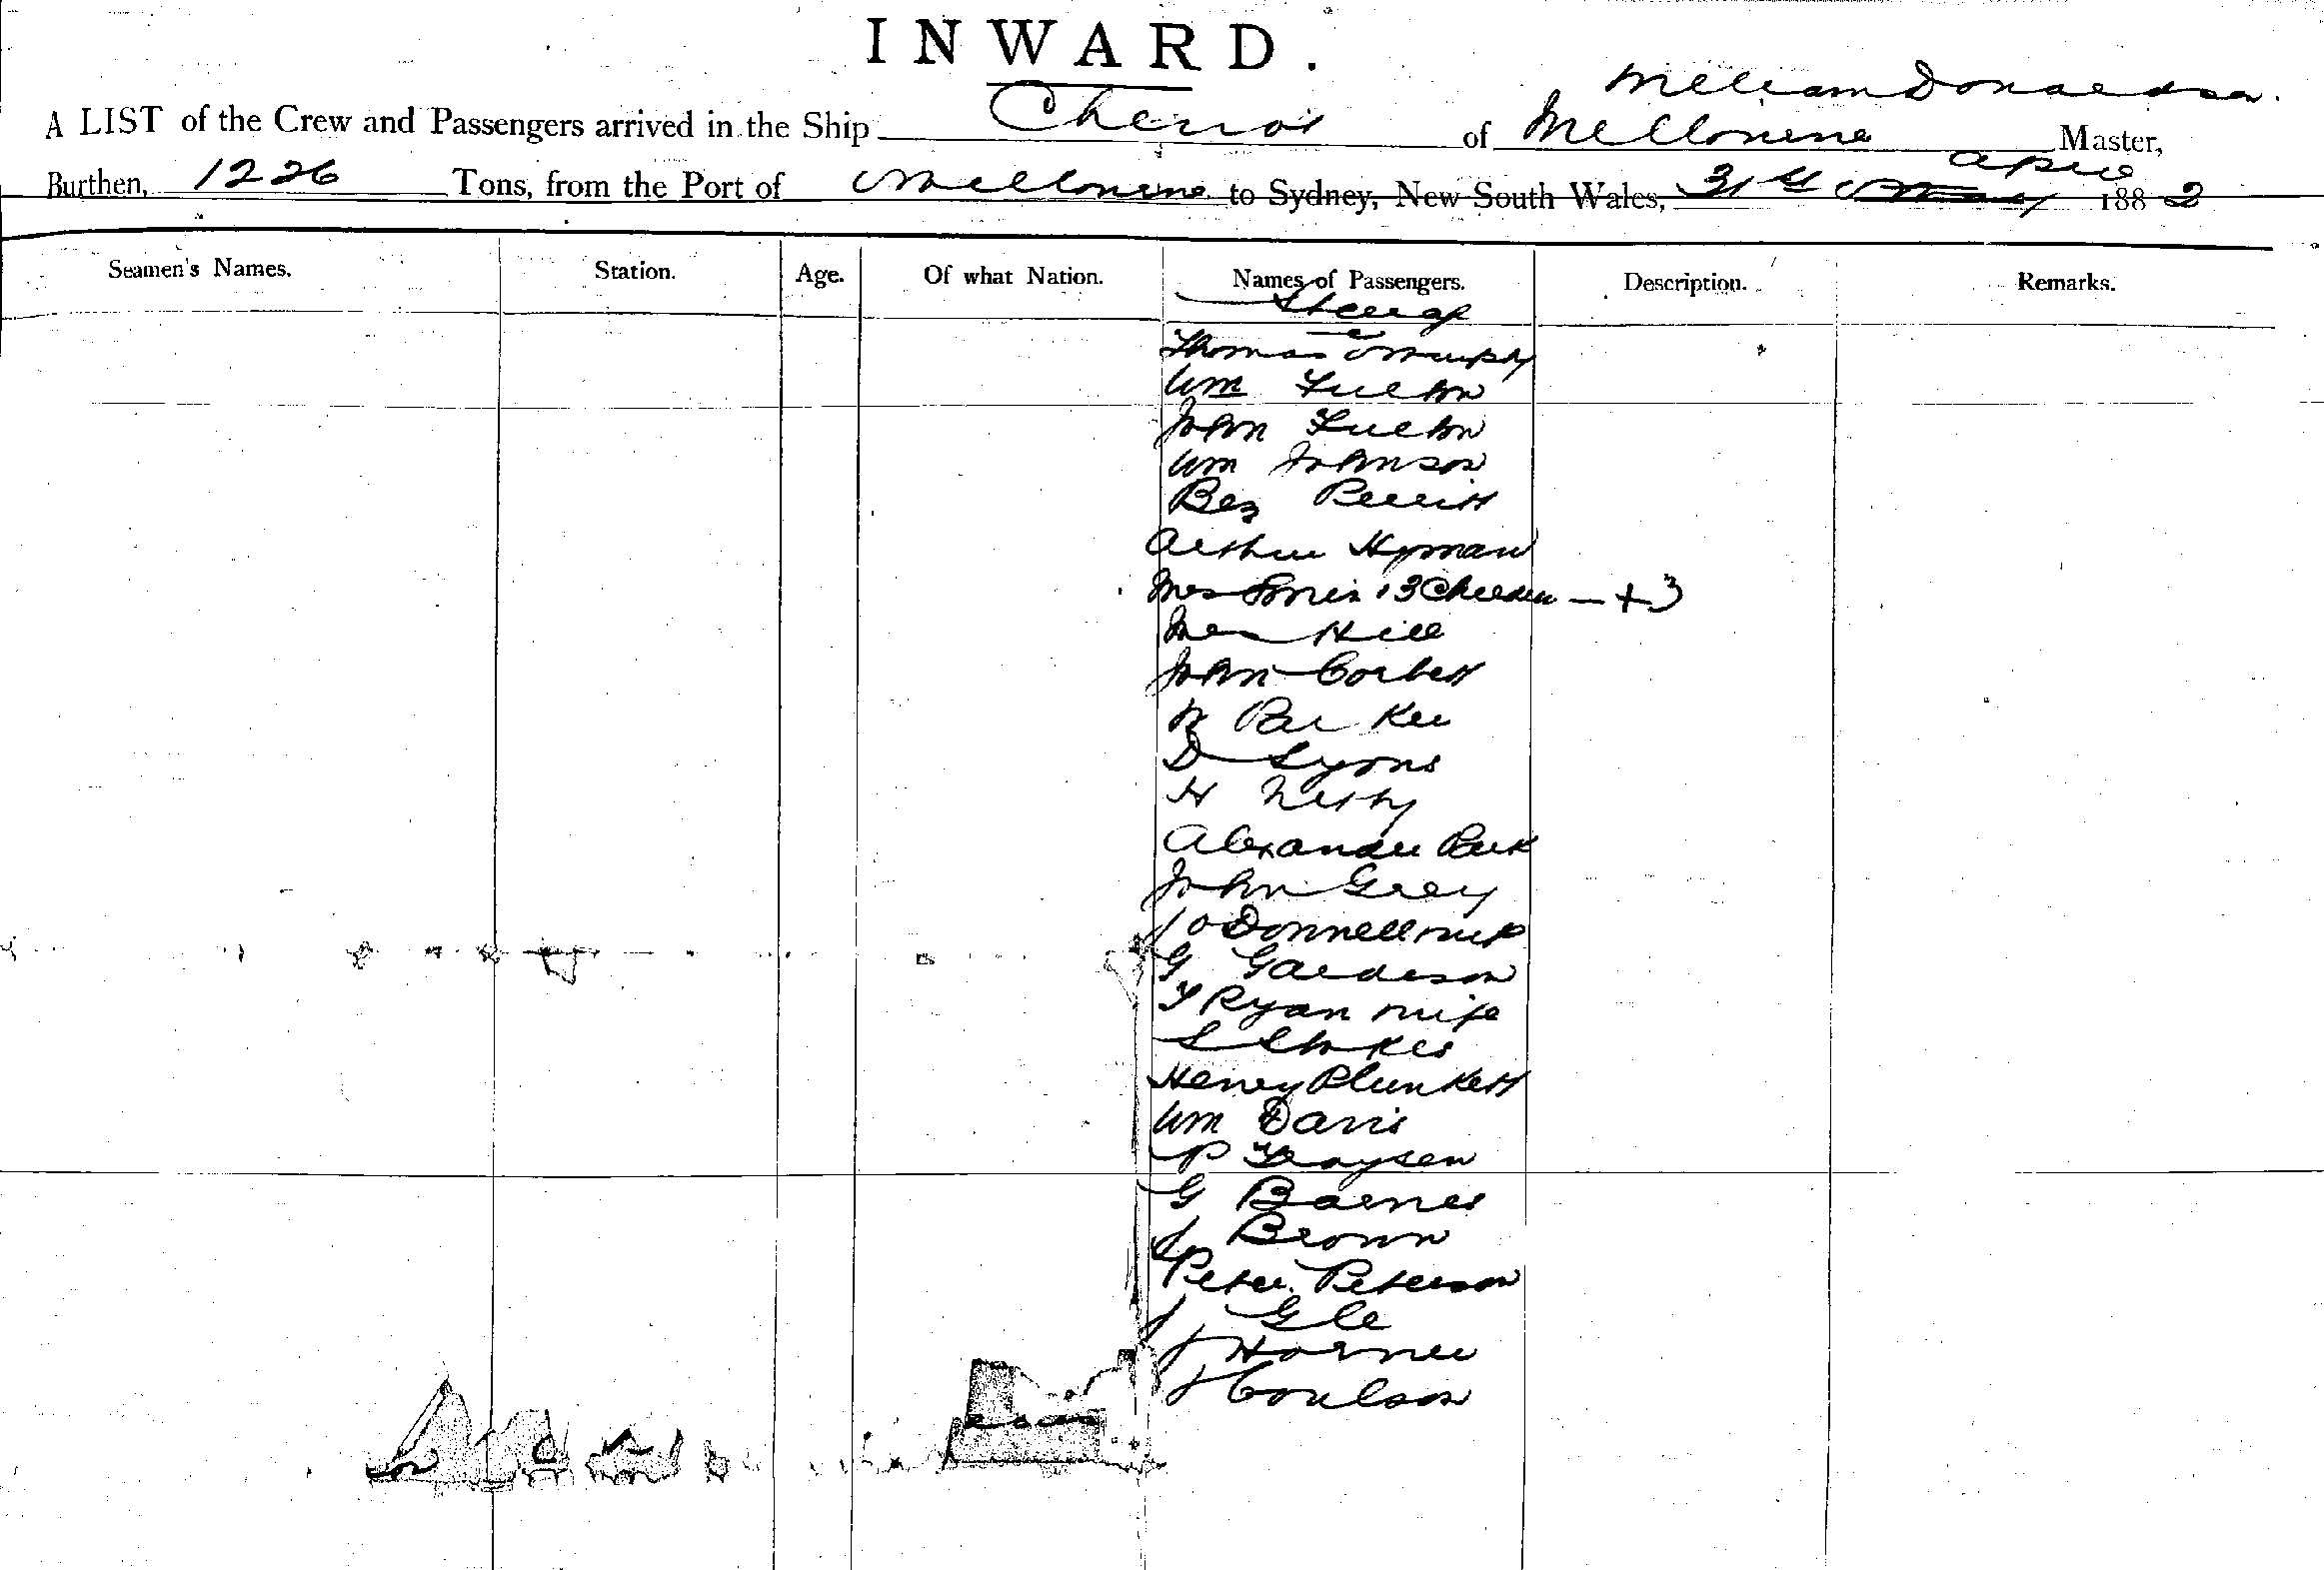 INWARD.
William Donaldson.
A LIST of the Crew and Passengers arrived in the Ship Cheviot of Melbourne Master,
Burthen, 1226 Tons, from the Port of Melbourne to Sydney, New South Wales, 31st May April 1882
Seamen's Names. Station. Age. Of what Nation. Names of Passengers. Description. Remarks.
Steerage
Thomas Murphy
Wm Fulton
John Fulton
Wm Johnson
Ben Perritt
Arthur Hyman
Mrs 3 Children — + 3
Mrs Hill
John Corbett
W Parker
D Lyons
H
Alexander Park
John Grey
J O Donnell wife
G
T Ryan wife
S Stokes
Henry Plunkett
Wm Davis
P
G Barnes
J Brown
Peter Peterson
J
J Horner
J Coulson